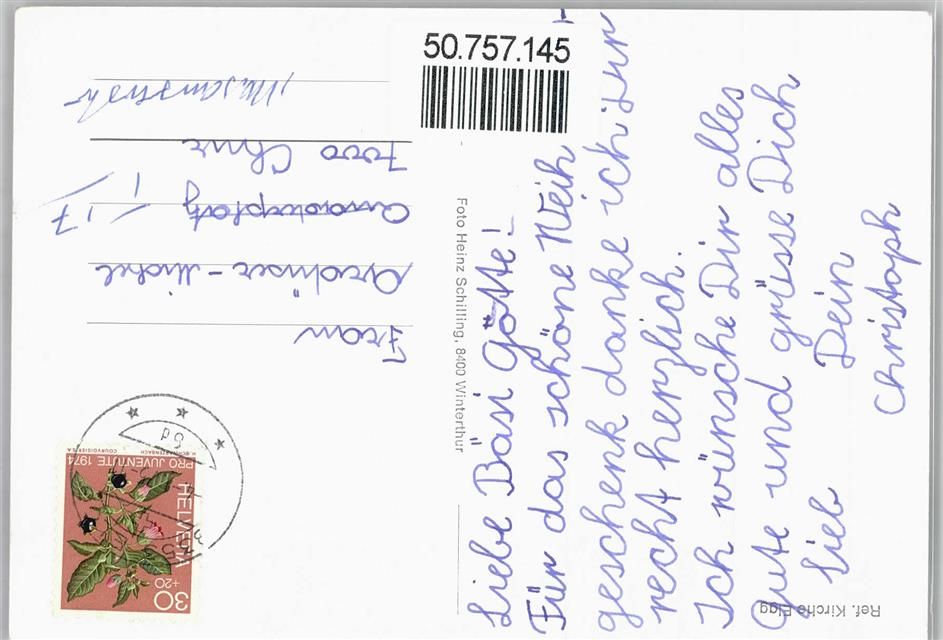 50.757.145
Liebe Bäsi Götte!
Für das schöne Weih-
geschenk danke ich zur
recht herzlich.
Ich wünsche Dir alles
Gute und grüsse Dich
lieb
Dein
Christoph
Frau
7000 Chur
17
Foto Heinz Schilling, 8400 Winterthur
Ref. Kirche Elgg
HELVETIA
30
+20
PRO JUVENTUTE 1974
COURVOISIER S.A.